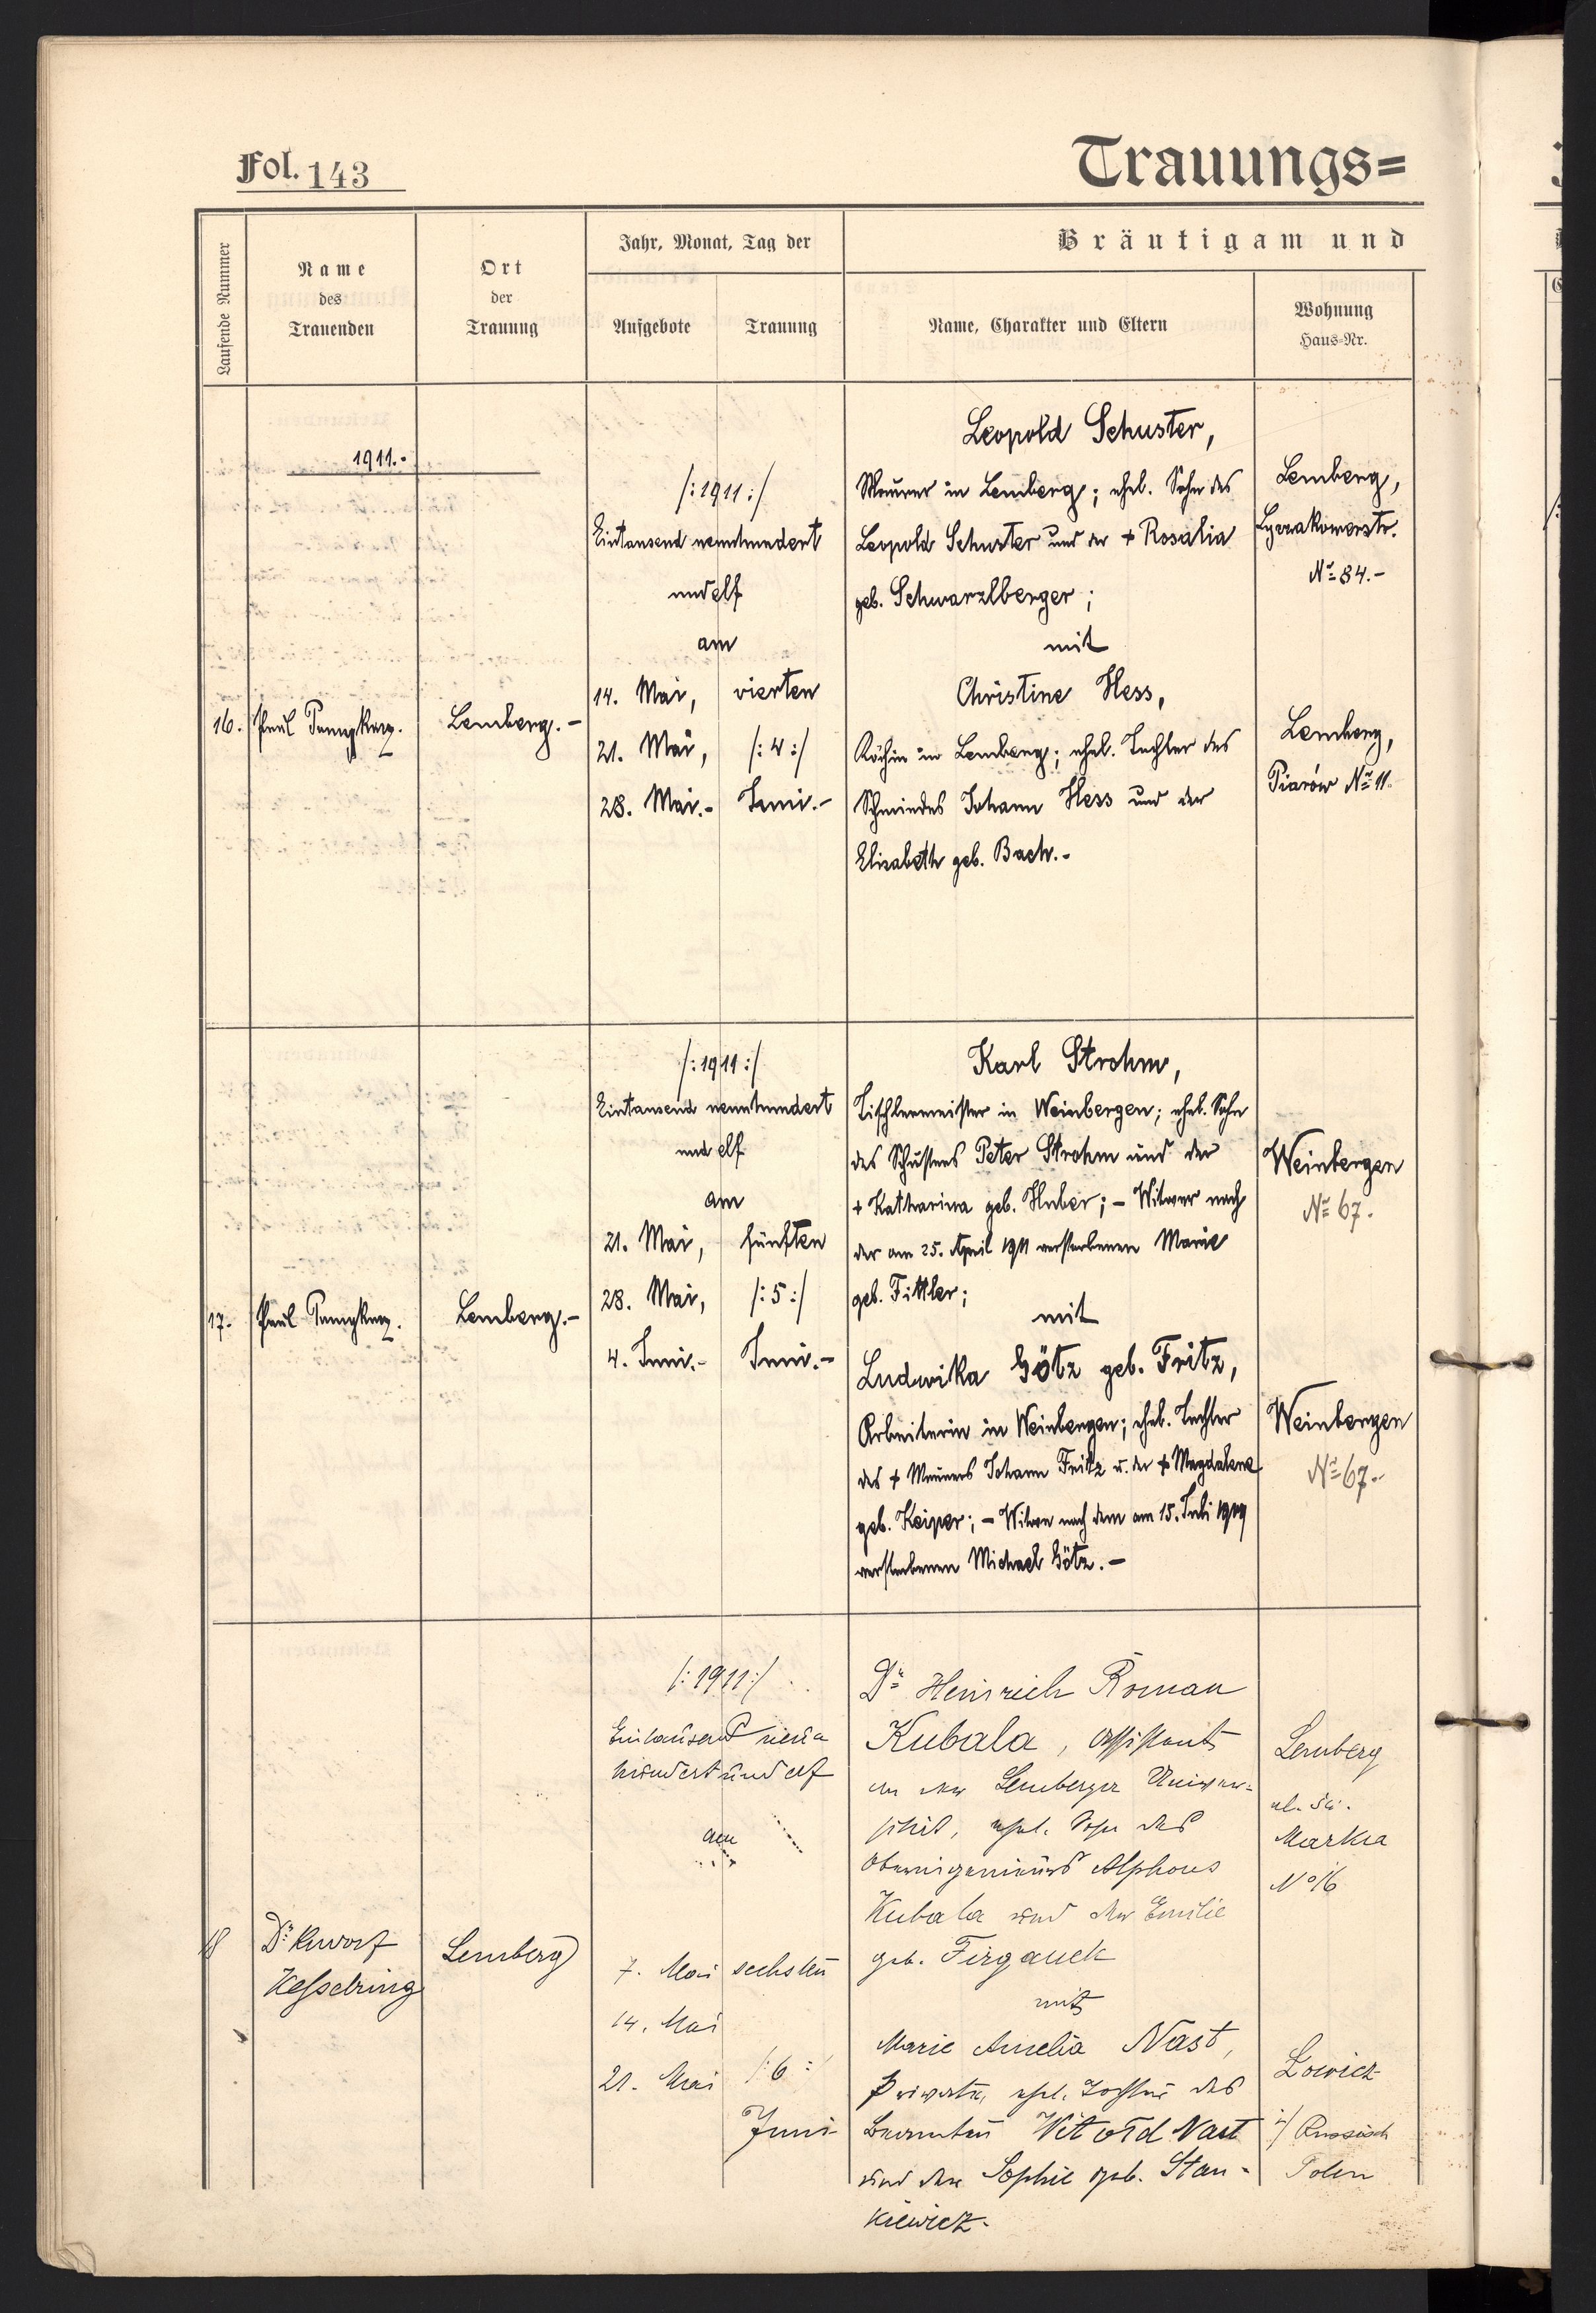 Fol. 143
Trauungs=
Laufende Nummer
Name
des
Trauenden
Ort
der
Trauung
Jahr, Monat, Tag der
Aufgebote
Trauung
Bräutigam und
Name, Charakter und Eltern
Wohnung
Haus=Nr.
1911.-
16.
Paul
Lemberg.-
/:1911:/
Eintausend neunhundert
und elf
am
14. Mai,
21. Mai,
28. Mai.-
vierten
/:4:/
Juni.-
Leopold Schuster,
Maurer in Lemberg; ehel. Sohn des
Leopold Schuster und der + Rosalia
geb. Schwarzlberger;
mit
Christine Hess,
Köchin in Lemberg; ehel. Tochter des
Schmiedes Johann Hess und der
Elisabeth geb. Bach.-
Lemberg,
Lyczakowerstr.
No 84.-
Lemberg,
Piarów No 11.
17.
Paul
Lemberg.-
/:1911:/
Eintausend neunhundert
und elf
am
21. Mai,
28. Mai,
4. Juni.-
fünften
/:5:/
Juni.-
Karl Strohm,
Tischlermeister in Weinbergen; ehel. Sohn
des Schusters Peter Strohm und der
+ Katharina geb. Huber; - Witwer nach
der am 25. April 1911 verstorbenen Marie
geb. Fittler;
mit
Ludwika Götz geb. Fritz,
Arbeiterin in Weinbergen; ehel. Tochter
des + Maurers Johann Fritz u. der + Magdalena
geb. Keiper; - Witwe nach dem am 15. Juli 1909
verstorbenen Michael Götz.-
Weinbergen
No 67.
Weinbergen
No 67.-
18
Dr.
Kesselring
Lemberg
/:1911:/
Eintausend neun
hundert und elf
am
7. Mai
14. Mai
21. Mai
sechsten
/:6:/
Juni
Dr Heinrich Roman
Kubala, Assistent
an der Lemberger Univer=
sität, ehel. Sohn des
Oberingenieurs Alphons
Kubala und der Emilie
geb. Firganek
mit
Marie Amelia Nast,
Private, ehel. Tochter des
Beamten Witold Nast
und der Sophie geb. Stan-
kiewicz.
Lemberg
ul. św.
Marka
No 16
Lowicz
i/ Russisch
Polen